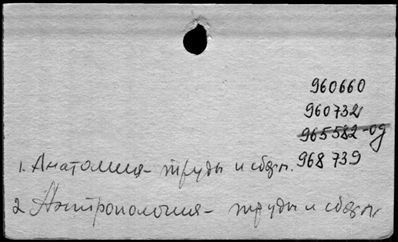 960660
960732
965582-од
968739
1. Анатомия - труды и сборн.
2. Антропология - труды и сборн.